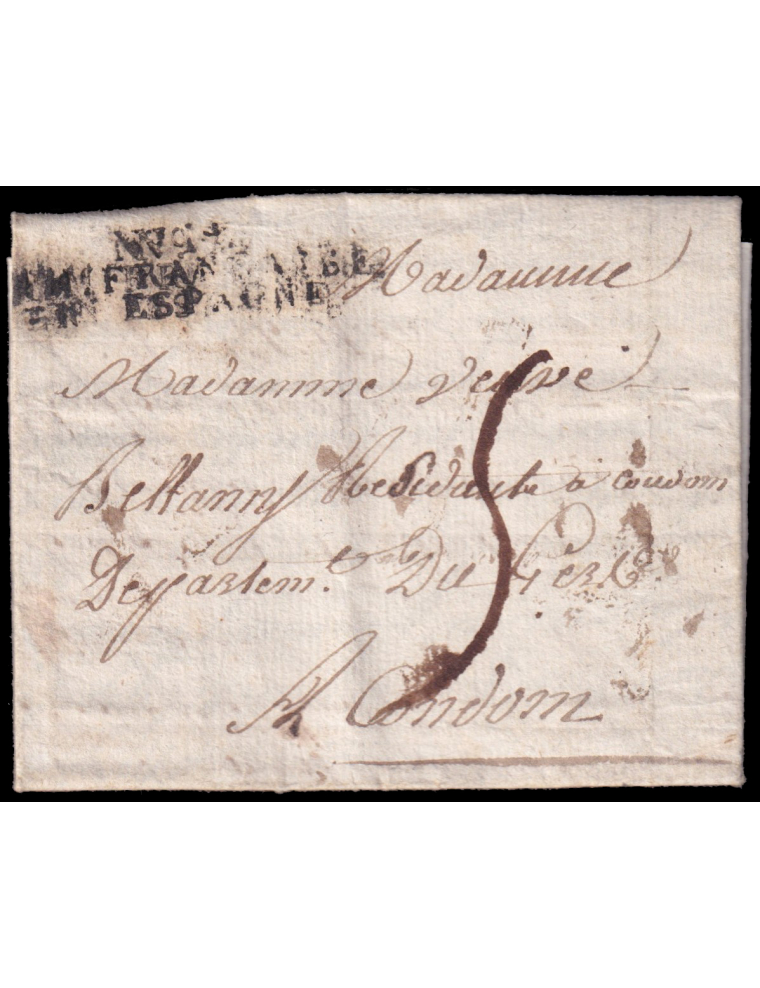 Nº 9
ARMÉE FRANÇAISE
EN ESPAGNE
Madamme
Madamme veuve
Beltanny Residante a condom
Departem.t Du Gers
A Condom
5